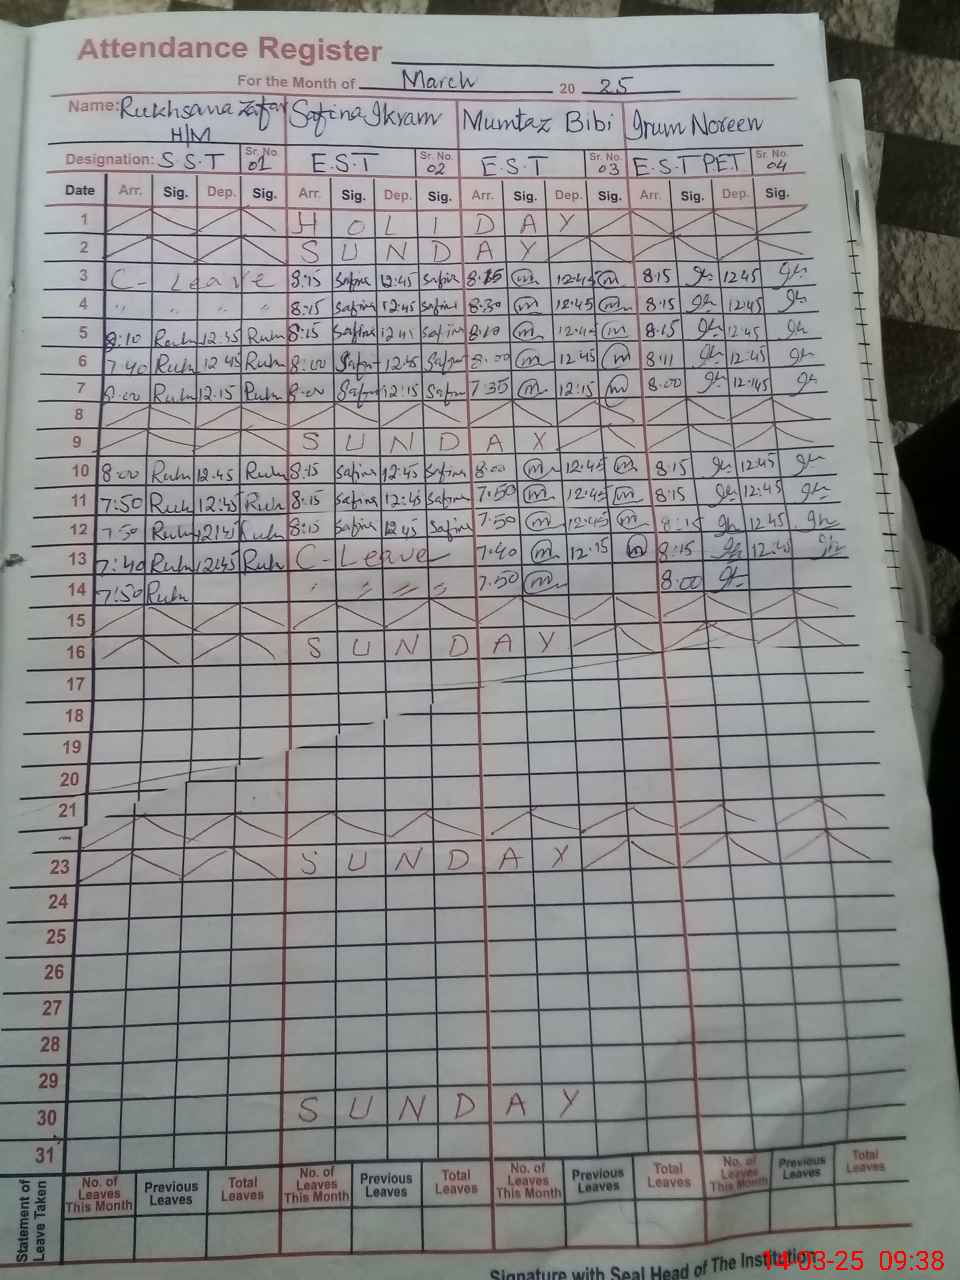 Attendance Register
For the Month of March 20 25
Name: Rukhsana Zafar Safina Ikram Mumtaz Bibi Irum Noreen
H/M
Designation: S.S.T Sr. No. 01 E.S.T Sr. No. 02 E.S.T Sr. No. 03 E.S.T PET Sr. No. 04
Date Arr. Sig. Dep. Sig. Arr. Sig. Dep. Sig. Arr. Sig. Dep. Sig. Arr. Sig. Dep. Sig.
1 H O L I D A Y
2 S U N D A Y
3 C- Leave 8:15 Safina 12:45 Safina 8:15 m 12:45 m 8:15 12:45
4 " " " " 8:15 Safina 12:45 Safina 8:30 m 12:45 m 8:15 12:45
5 8:10 Rukh 12:45 Rukh 8:15 Safina 12:45 Safina 8:10 m 12:45 m 8:15 12:45
6 7:40 Rukh 12:45 Rukh 8:00 Safina 12:45 Safina 8:00 m 12:45 m 8:11 12:45
7 8:00 Rukh 12:15 Rukh 8:00 Safina 12:15 Safina 7:35 m 12:15 m 8:00
8
9 S U N D A Y
10 8:00 Rukh 12:45 Rukh 8:15 Safina 12:45 Safina 8:00 m 12:45 m 8:15 12:45
11 7:50 Rukh 12:45 Rukh 8:15 Safina 12:45 Safina 7:50 m 12:45 m 8:15 12:45
12 7:50 Rukh 12:45 Rukh 8:15 Safina 12:45 Safina 7:50 m 12:45 m 8:15 12:45
13 7:40 Rukh 12:45 Rukh C- Leave 7:40 m 12:15 m 8:15
14 7:50 Rukh 7:50 m 8:00
15
16 S U N D A Y
17
18
19
20
21
23 S U N D A Y
24
25
26
27
28
29
30 S U N D A Y
31
Statement of Leave Taken
No. of Leaves This Month Previous Leaves Total Leaves No. of Leaves This Month Previous Leaves Total Leaves No. of Leaves This Month Previous Leaves Total Leaves No. of Leaves This Month Previous Leaves Total Leaves
Signature with Seal Head of The Institution
14-03-25 09:38